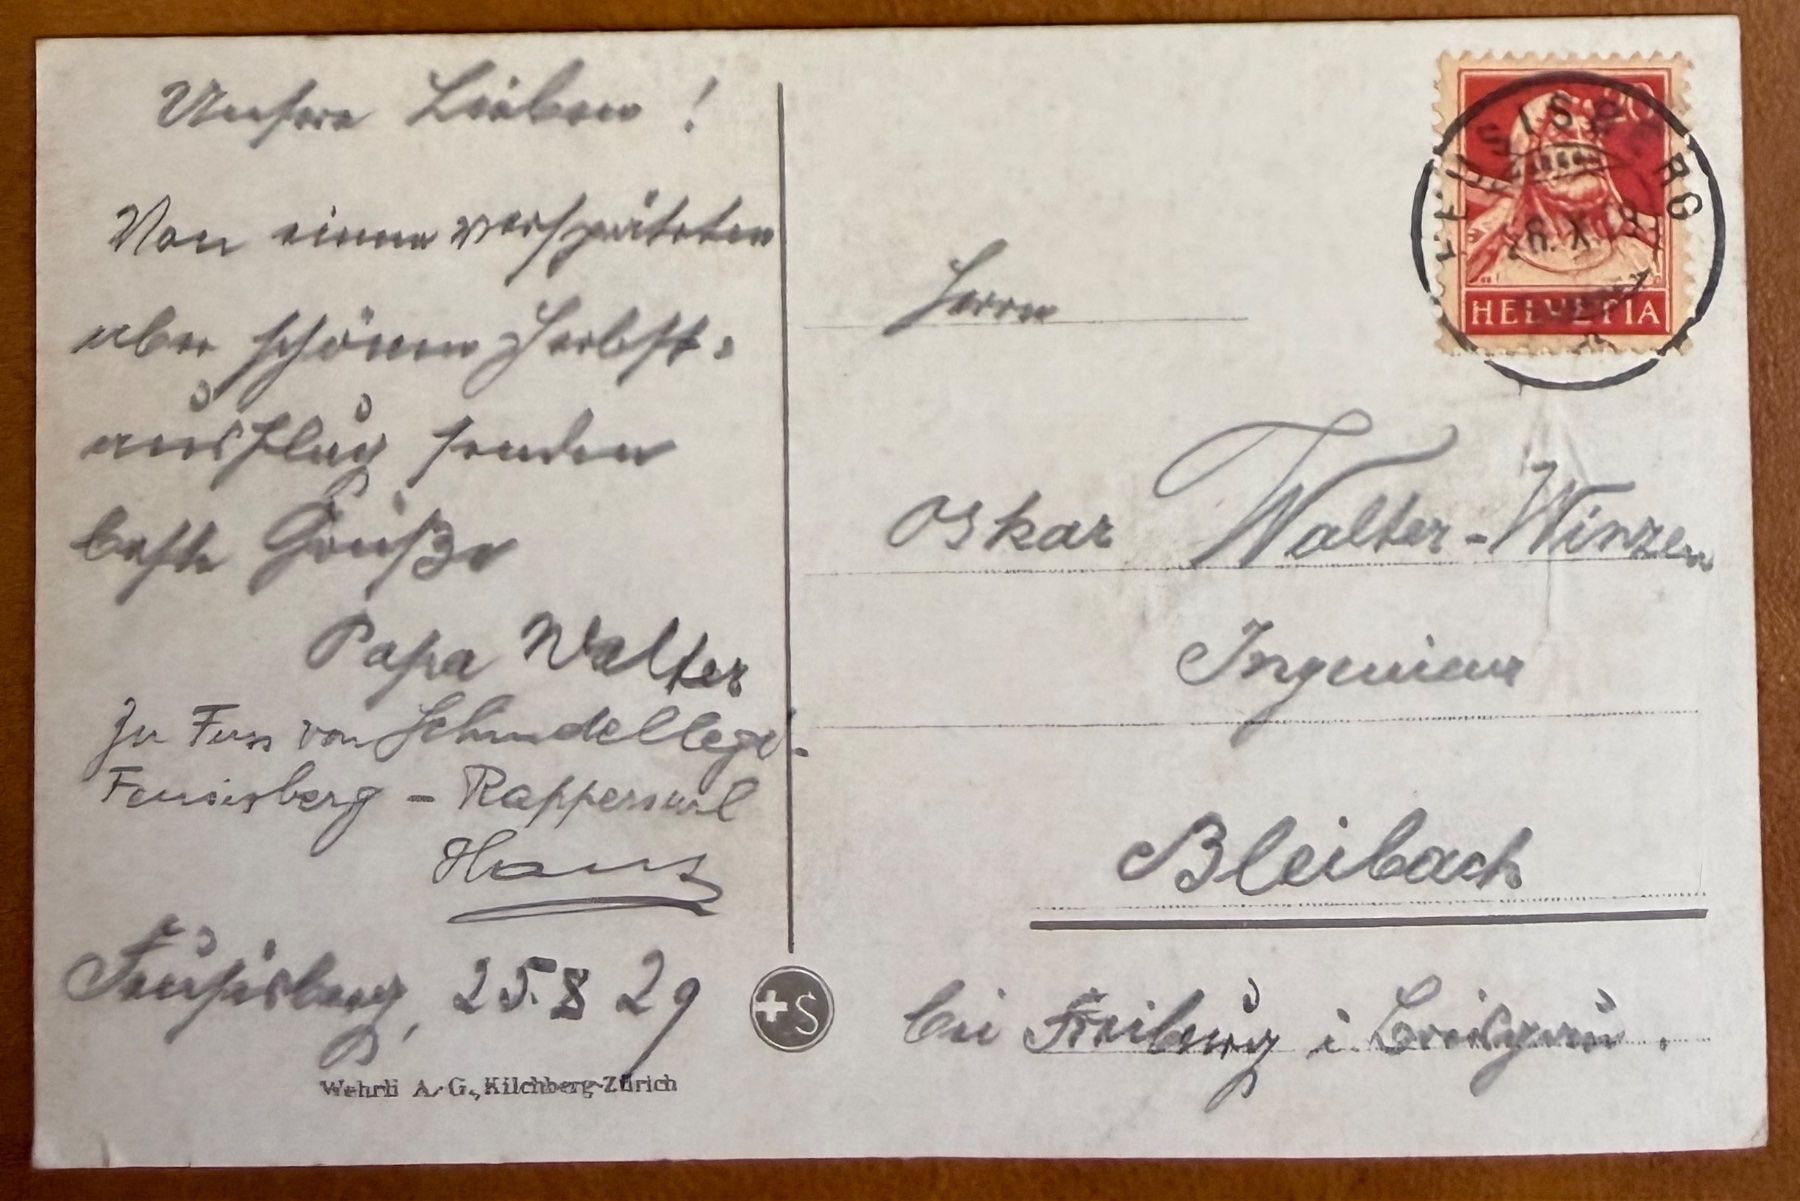 Unsere Lieben !
Von einem verspäteten
aber schönen Herbst-
ausflug senden
beste Grüße
Papa Walter
Zu Fuss von Schindellegi-
Feusisberg - Rapperswil
Hans
Feusisberg, 25. X 29
Wehrli A.-G., Kilchberg-Zürich
+S
20
HELVETIA
FEUSISBERG
26. X.
Herrn
Oskar Walter-Winzen
Ingenieur
Bleibach
bei Freiburg i. Breisgau.